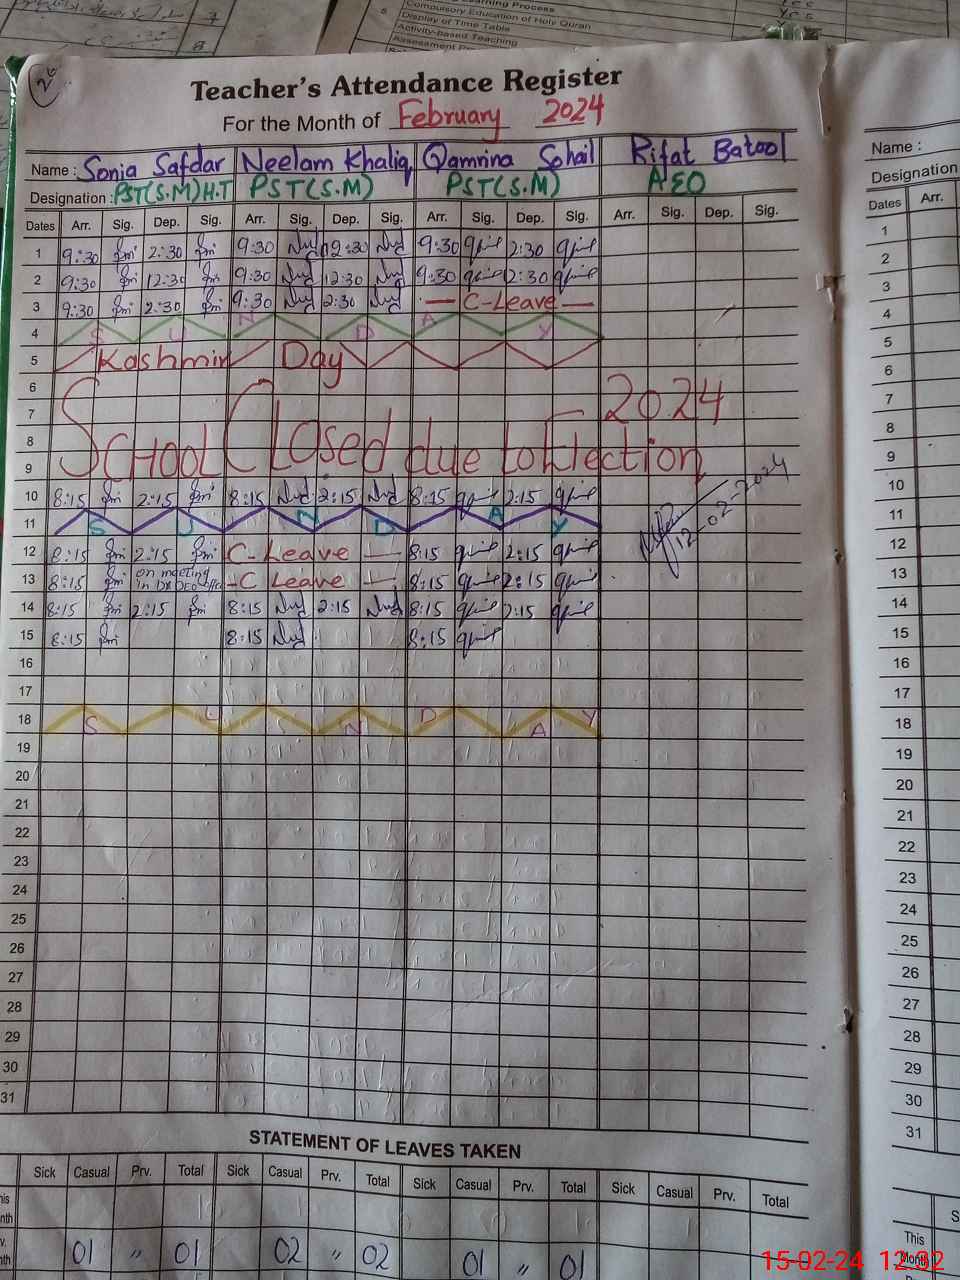 Learning Process
Compulsory Education of Holy Quran
Display of Time Table
Activity-Based Teaching
Yes
Yes
26
Teacher's Attendance Register
For the Month of February 2024
Name : Sonia Safdar Neelam Khaliq Qamrina Sohail Rifat Batool
Designation : PST(S.M)H.T PST(S.M) PST(S.M) AEO
Dates Arr. Sig. Dep. Sig. Arr. Sig. Dep. Sig. Arr. Sig. Dep. Sig. Arr. Sig. Dep. Sig.
1 9:30 2:30 9:30 12:30 9:30 2:30
2 9:30 12:30 9:30 12:30 9:30 12:30
3 9:30 2:30 9:30 2:30 — C-Leave —
4 S U N D A Y
5 Kashmir Day
6
7 2024
8 School Closed due to Election
9
10 8:15 2:15 8:15 2:15 8:15 2:15
11 S U N D A Y
12 8:15 2:15 C-Leave — 8:15 2:15
12-02-2024
13 8:15 on meeting in - C Leave — 8:15 2:15
14 8:15 2:15 8:15 2:15 8:15 2:15
15 8:15 8:15 8:15
16
17
18 S U N D A Y
19
20
21
22
23
24
25
26
27
28
29
30
31
STATEMENT OF LEAVES TAKEN
Sick Casual Prv. Total Sick Casual Prv. Total Sick Casual Prv. Total Sick Casual Prv. Total
01 " 01 02 " 02 01 " 01
Name :
Designation
Dates Arr.
1
2
3
4
5
6
7
8
9
10
11
12
13
14
15
16
17
18
19
20
21
22
23
24
25
26
27
28
29
30
31
This
Month
15-02-24 12:32